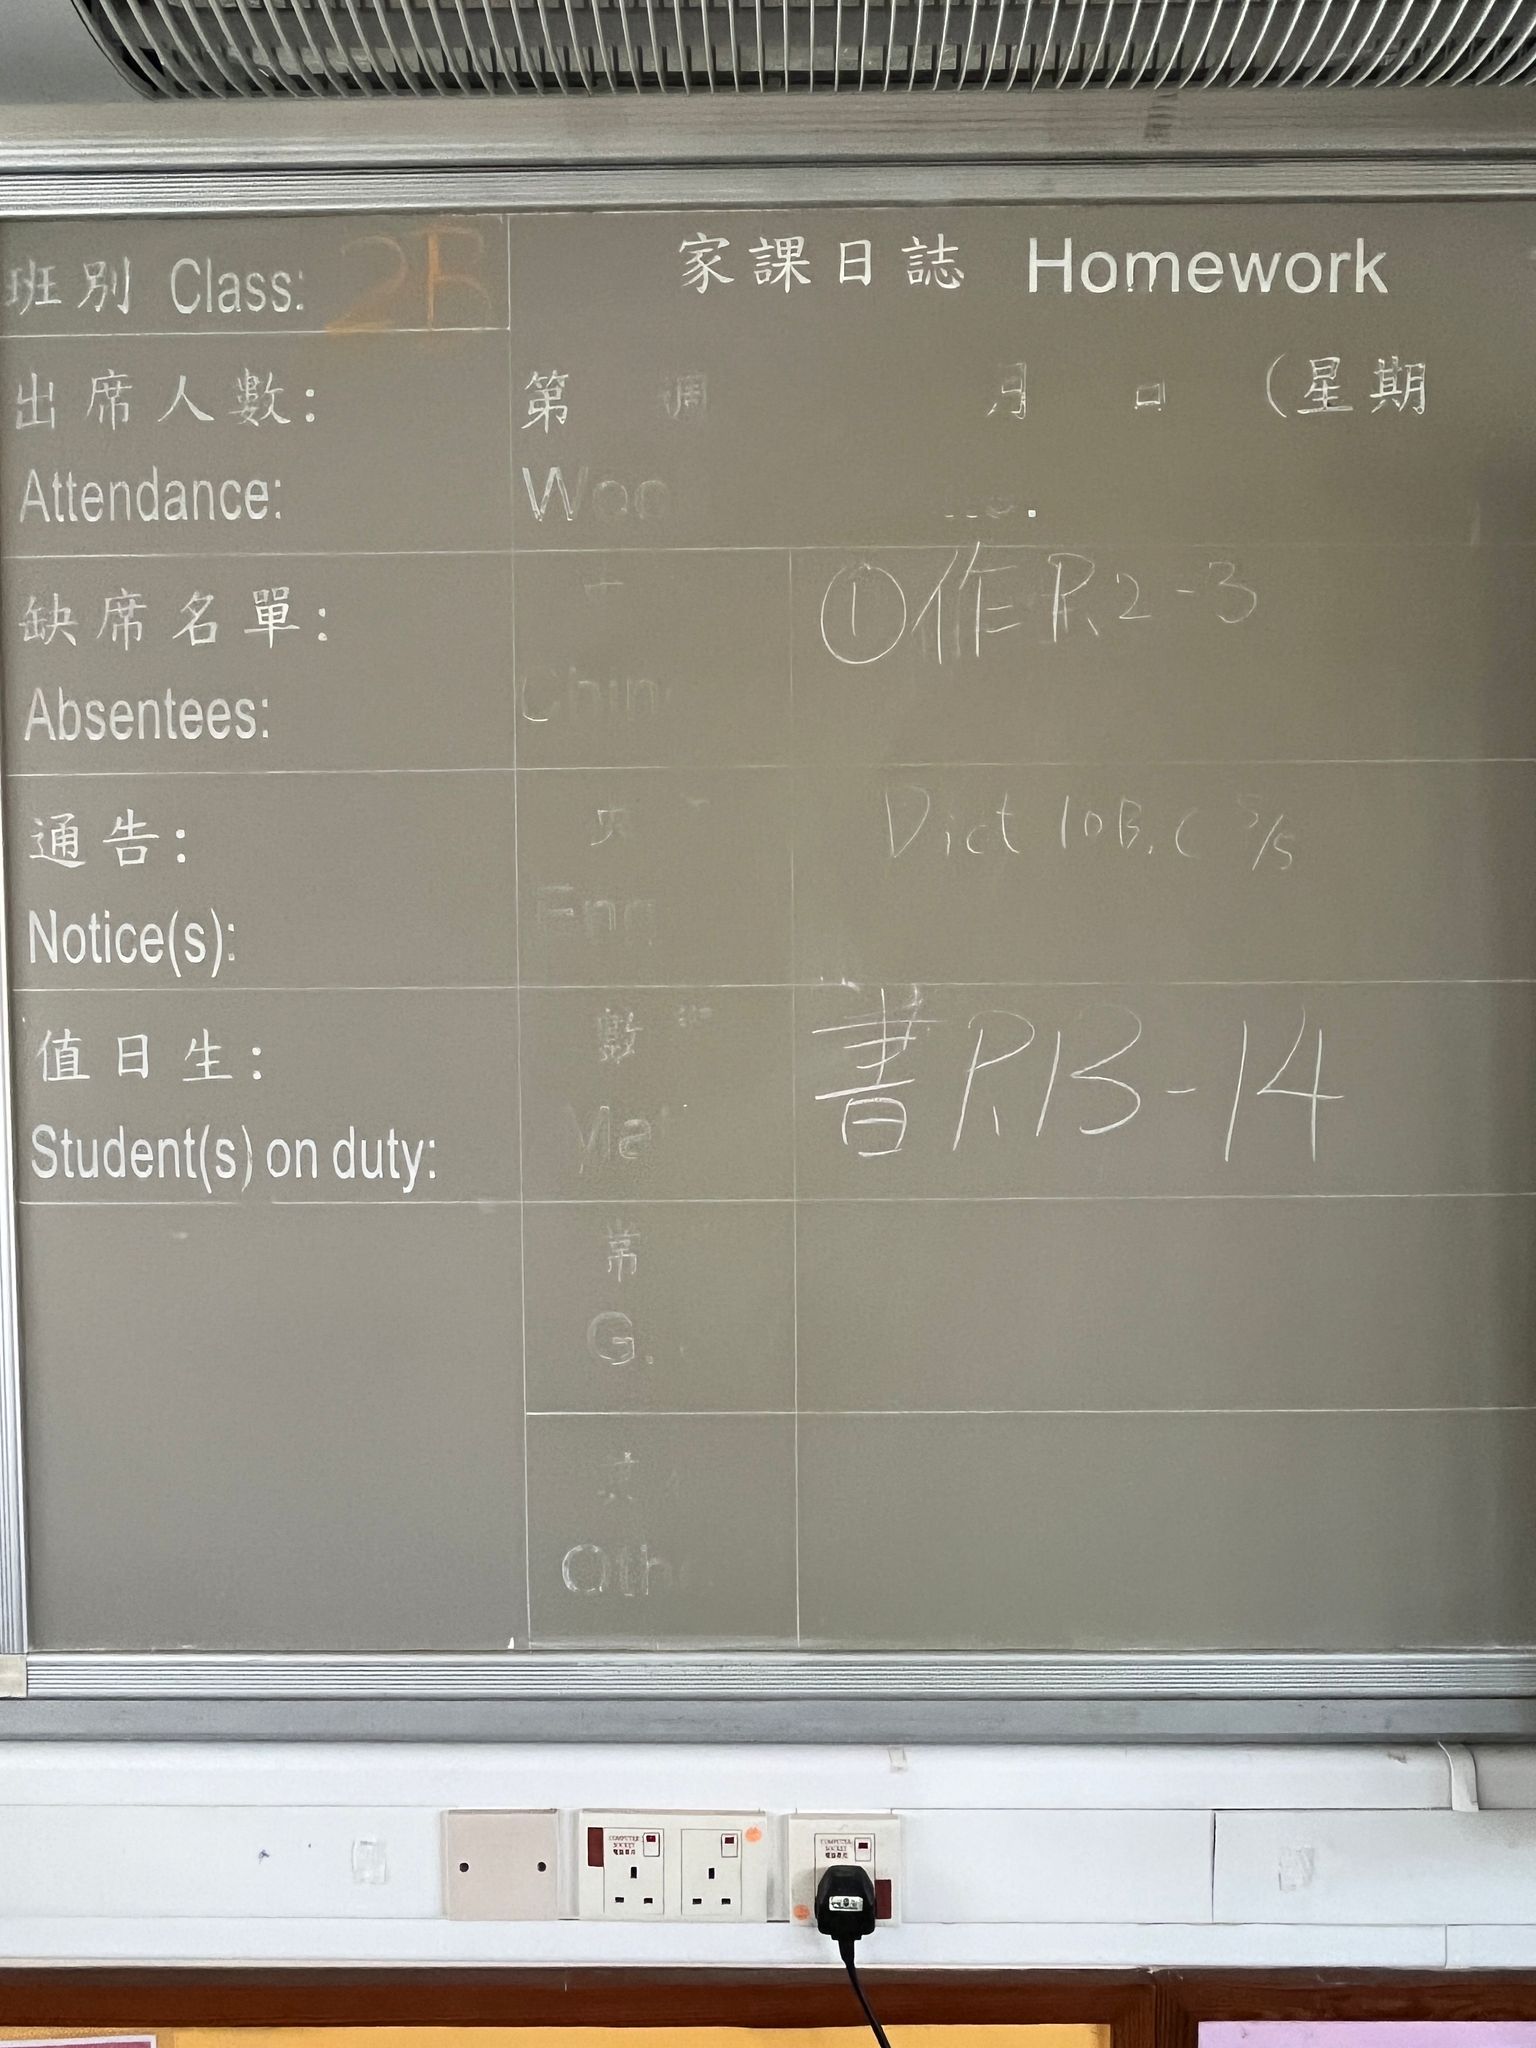 班別 Class: 2B
家課日誌 Homework
出席人數:
Attendance:
第 週 月 日 (星期
缺席名單:
Absentees:
①作 P.2-3
通告:
Notice(s):
Dict 10B.C 5/5
值日生:
Student(s) on duty:
數
書 P.13-14
常
G.
COMPUTER SOCKET
COMPUTER SOCKET